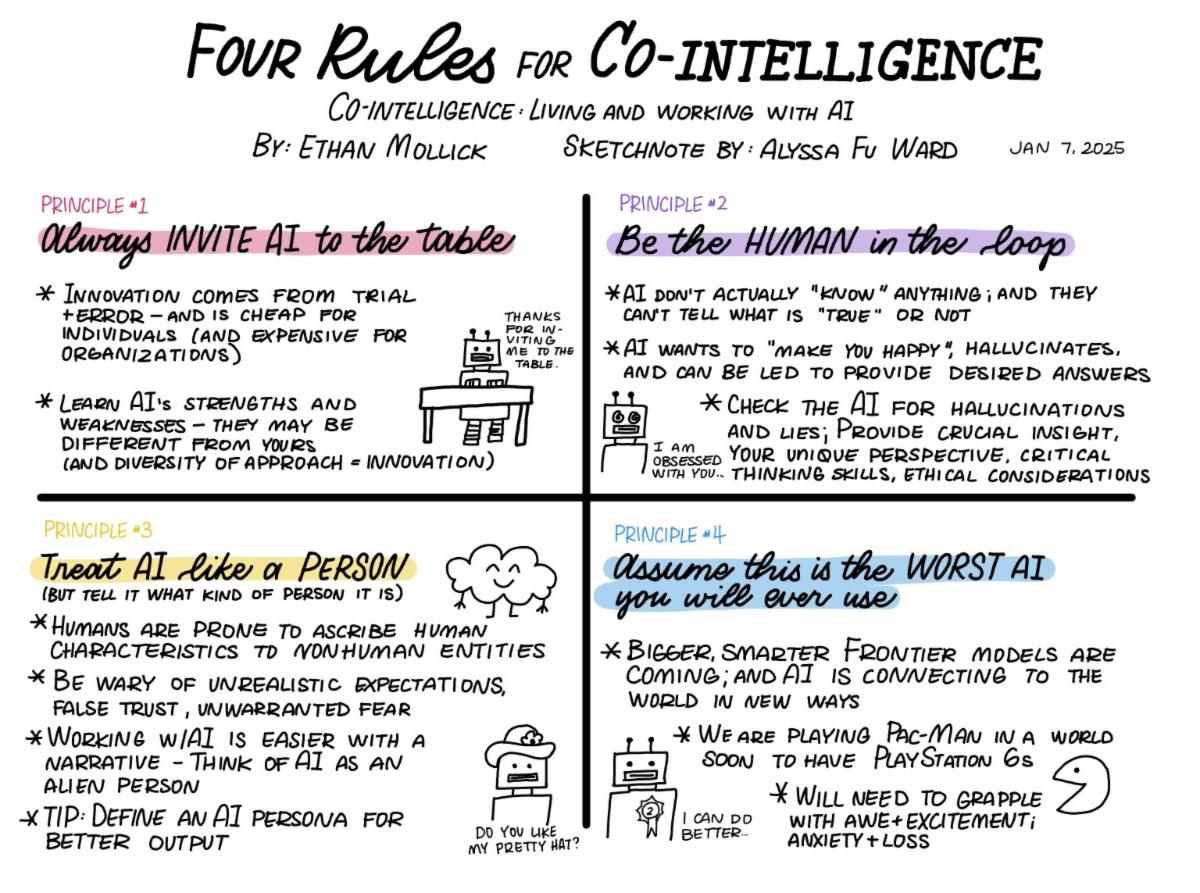 FOUR Rules FOR CO-INTELLIGENCE
CO-INTELLIGENCE: LIVING AND WORKING WITH AI
BY: ETHAN MOLLICK SKETCHNOTE BY: ALYSSA FU WARD JAN 7, 2025
PRINCIPLE #1
Always INVITE AI to the table
* INNOVATION COMES FROM TRIAL
+ERROR – AND IS CHEAP FOR
INDIVIDUALS (AND EXPENSIVE FOR
ORGANIZATIONS)
THANKS
FOR IN-
VITING
ME TO THE
TABLE.
* LEARN AI'S STRENGTHS AND
WEAKNESSES – THEY MAY BE
DIFFERENT FROM YOURS
(AND DIVERSITY OF APPROACH = INNOVATION)
PRINCIPLE #2
Be the HUMAN in the loop
* AI DON'T ACTUALLY "KNOW" ANYTHING; AND THEY
CAN'T TELL WHAT IS "TRUE" OR NOT
* AI WANTS TO "MAKE YOU HAPPY", HALLUCINATES,
AND CAN BE LED TO PROVIDE DESIRED ANSWERS
* CHECK THE AI FOR HALLUCINATIONS
AND LIES; PROVIDE CRUCIAL INSIGHT,
YOUR UNIQUE PERSPECTIVE, CRITICAL
THINKING SKILLS, ETHICAL CONSIDERATIONS
I AM
OBSESSED
WITH YOU...
PRINCIPLE #3
Treat AI like a PERSON
(BUT TELL IT WHAT KIND OF PERSON IT IS)
* HUMANS ARE PRONE TO ASCRIBE HUMAN
CHARACTERISTICS TO NONHUMAN ENTITIES
* BE WARY OF UNREALISTIC EXPECTATIONS,
FALSE TRUST, UNWARRANTED FEAR
* WORKING W/AI IS EASIER WITH A
NARRATIVE – THINK OF AI AS AN
ALIEN PERSON
* TIP: DEFINE AN AI PERSONA FOR
BETTER OUTPUT
DO YOU LIKE
MY PRETTY HAT?
PRINCIPLE #4
Assume this is the WORST AI
you will ever use
* BIGGER, SMARTER FRONTIER MODELS ARE
COMING; AND AI IS CONNECTING TO THE
WORLD IN NEW WAYS
* WE ARE PLAYING PAC-MAN IN A WORLD
SOON TO HAVE PLAYSTATION 6S
* WILL NEED TO GRAPPLE
WITH AWE+EXCITEMENT;
ANXIETY+LOSS
2
I CAN DO
BETTER...